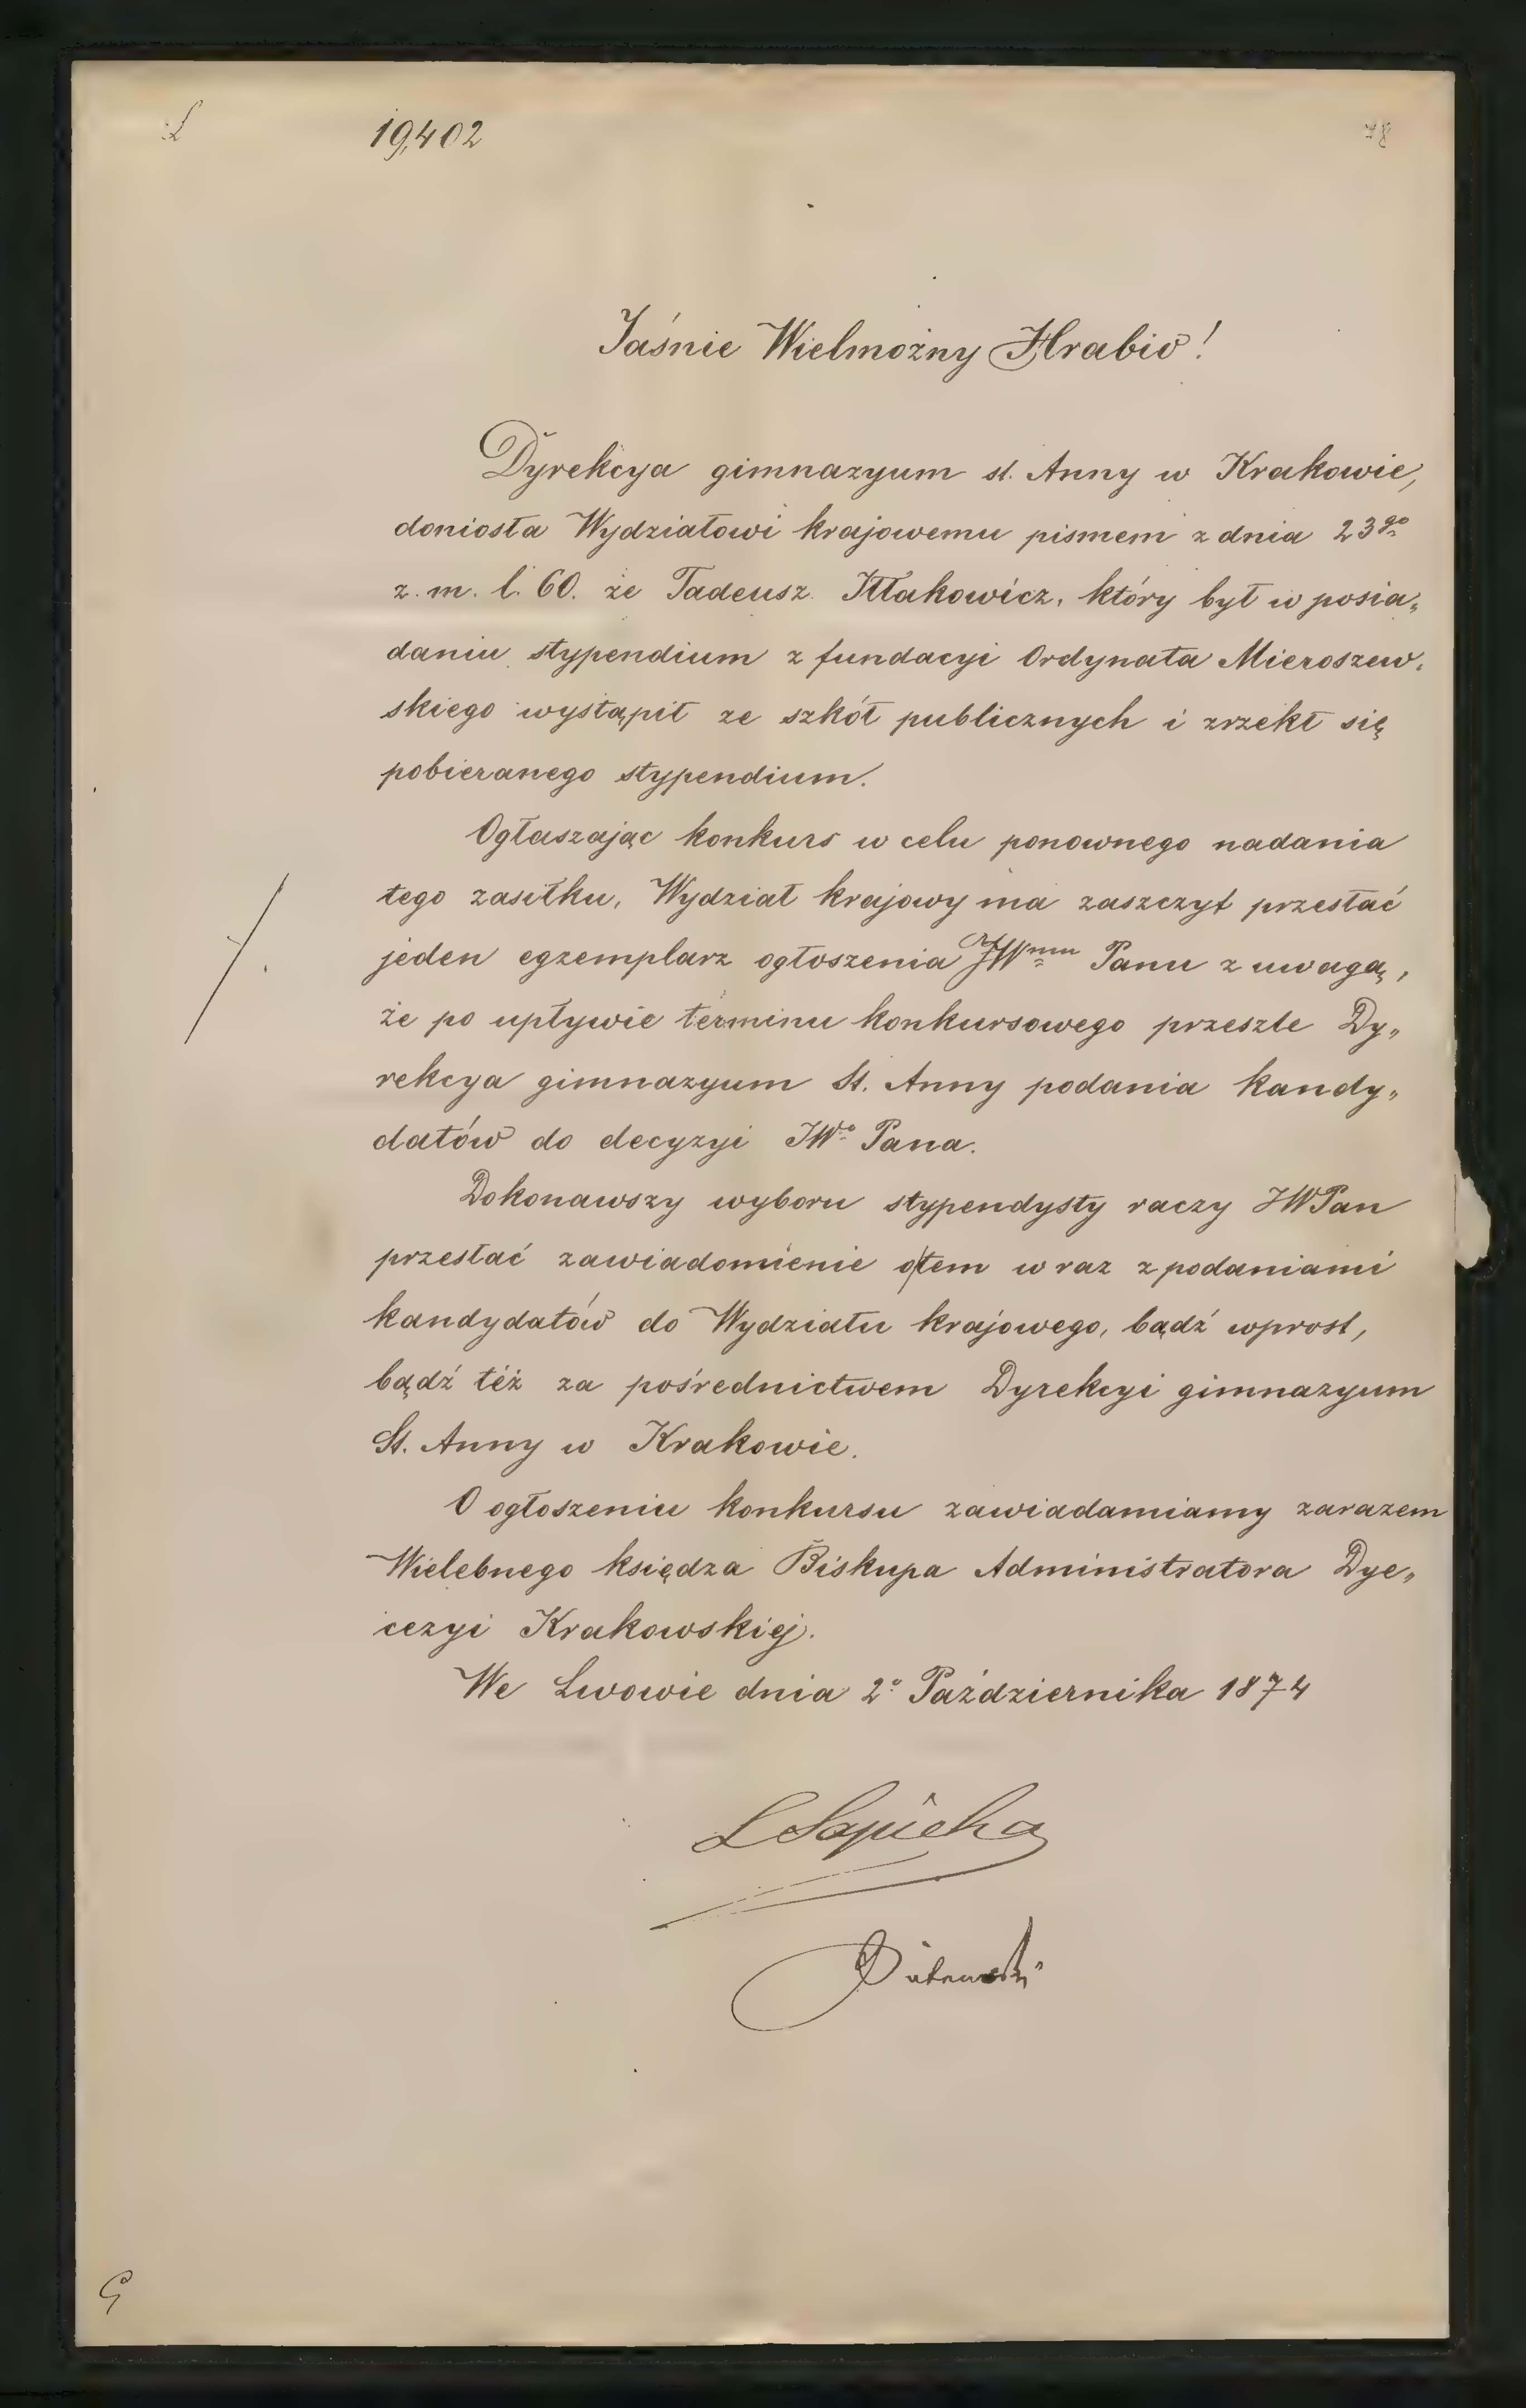 L 19,402 78
Jaśnie Wielmożny Hrabio!
Dyrekcya gimnazyum st. Anny w Krakowie,
doniosła Wydziałowi krajowemu pismem z dnia 23go
z. m. l. 60. że Tadeusz Iłłakowicz, który był w posia„
daniu stypendium z fundacyi Ordynata Mieroszew„
skiego wystąpił ze szkół publicznych i zrzekł się
pobieranego stypendium.
Ogłaszając konkurs w celu ponownego nadania
tego zasiłku, Wydział krajowy ma zaszczyt przesłać
jeden egzemplarz ogłoszenia JWmu Panu z uwagą,
że po upływie terminu konkursowego przeszle Dy„
rekcya gimnazyum St. Anny podania kandy„
datów do decyzyi JWo Pana.
Dokonawszy wyboru stypendysty raczy JWPan
przesłać zawiadomienie o tem wraz z podaniami
kandydatów do Wydziału krajowego, bądź wprost,
bądź też za pośrednictwem Dyrekcyi gimnazyum
St. Anny w Krakowie.
O ogłoszeniu konkursu zawiadamiamy zarazem
Wielebnego księdza Biskupa Administratora Dye„
cezyi Krakowskiej.
We Lwowie dnia 2o Października 1874
LSapieha